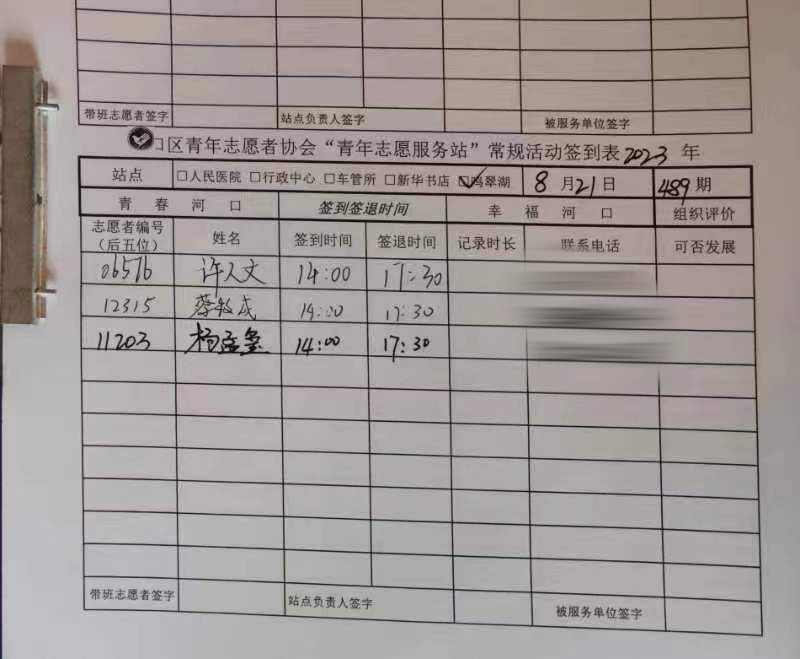 带班志愿者签字 站点负责人签字 被服务单位签字
口区青年志愿者协会“青年志愿服务站”常规活动签到表2023年
站点 □人民医院 □行政中心 □车管所 □新华书店 ☑鸣翠湖 8月21日 489期
青春河口 签到签退时间 幸福河口 组织评价
志愿者编号（后五位） 姓名 签到时间 签退时间 记录时长 联系电话 可否发展
06576 许人文 14:00 17:30
12315 蔡牧成 14:00 17:30
11203 杨孟鑫 14:00 17:30
带班志愿者签字 站点负责人签字 被服务单位签字